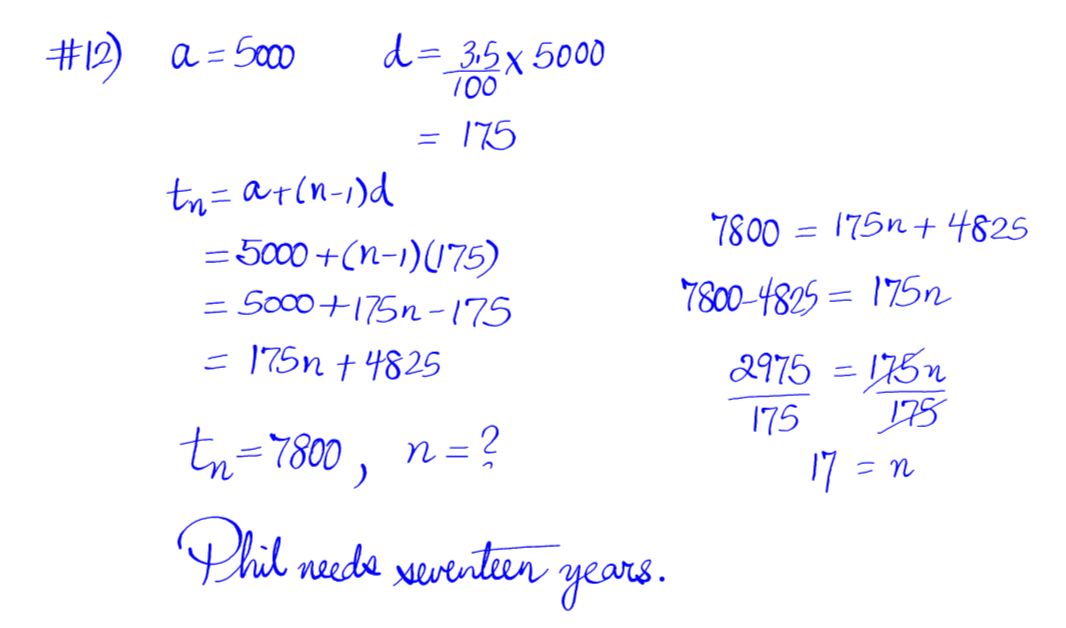 #12) a = 5000 d = 3.5/100 × 5000
= 175
tn = a+(n-1)d
= 5000 +(n-1)(175)
= 5000+175n-175
= 175n + 4825
tn = 7800, n = ?
7800 = 175n + 4825
7800-4825 = 175n
2975/175 = 175n/175
17 = n
Phil needs seventeen years.